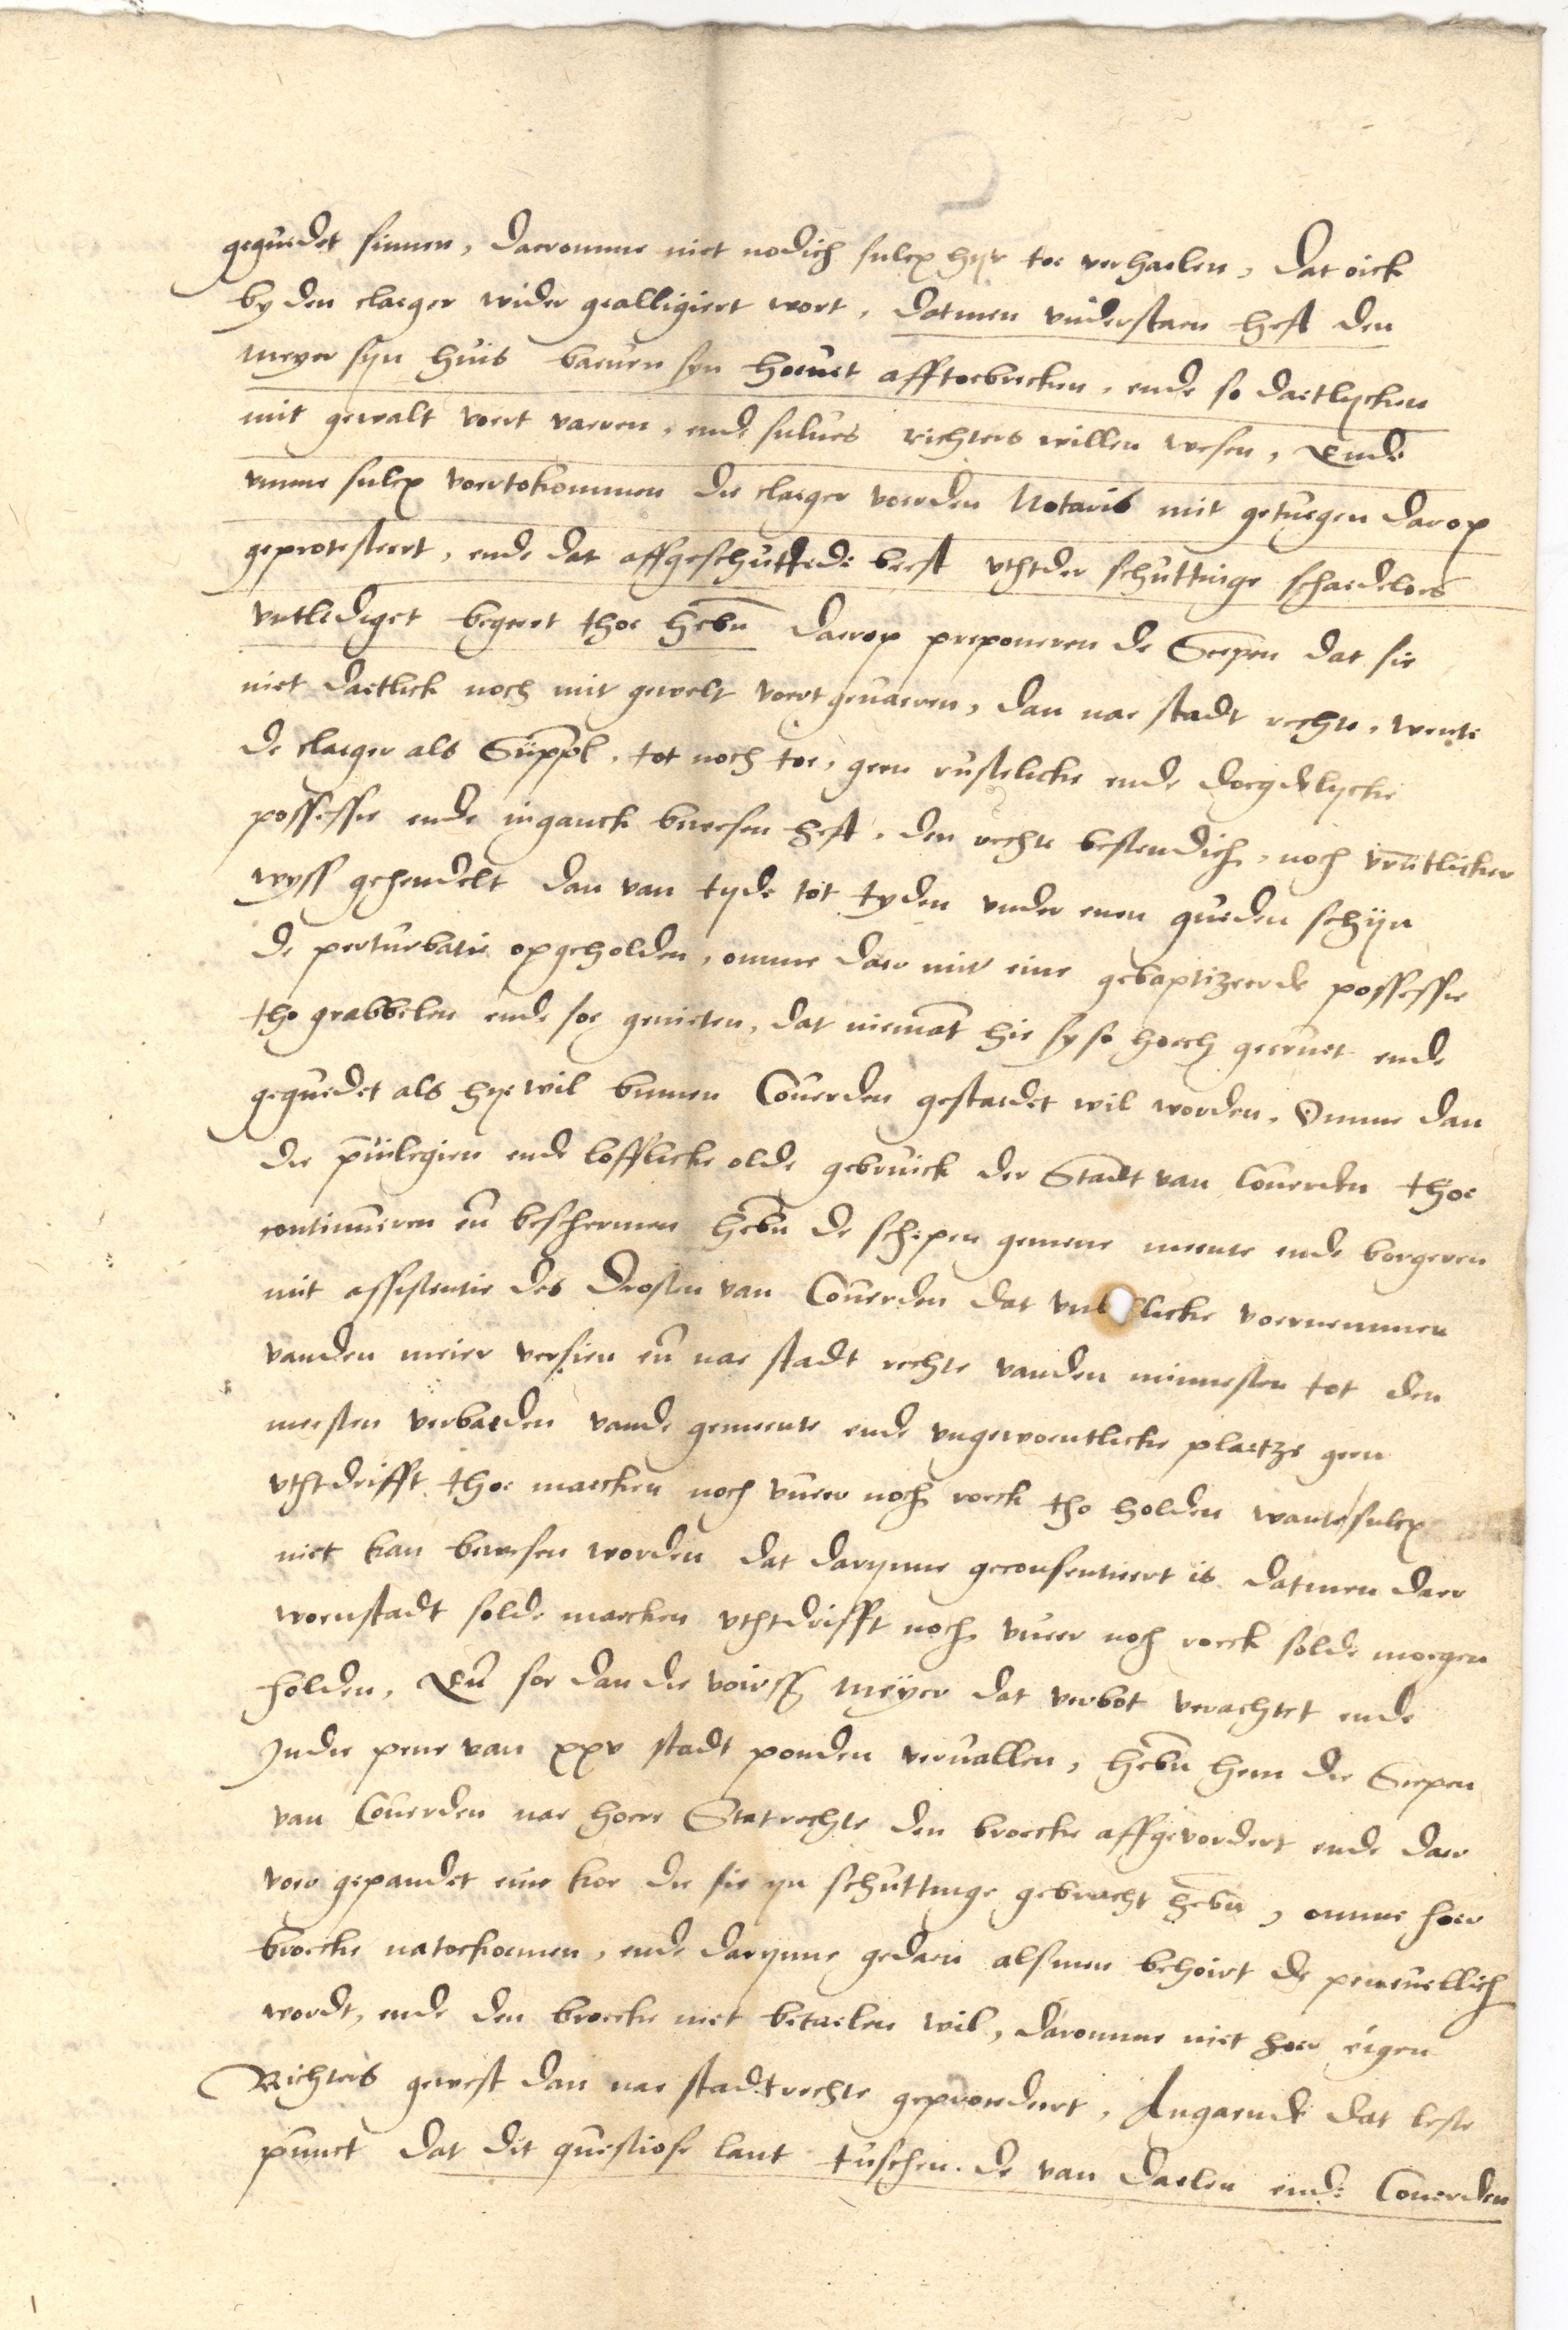 gegudet sinnen, daeromme niet nodich sulcx hyr toe verhaelen, Dat oick
by den claeger wider gealligiert wort, datmen understaen heft den
meyer syn huis baeven syn hoeuet afftoebrecken, ende so daetlycken
mit gewalt voert vaeren, ende sulues richters willen wesen, Ende
umme sulcx voertokommen die claeger voerden Notaris mit getuegen darop
geprotesteert, ende dat affgeschuttede beest uthtder schuttinge schaedeloes
untlediget begeert thoe hebn Daerop preponeren de Scepen dat sie
niet daetlick noch mit gewelt voert gevaeren, dan nae stadt rechte, wente
de claeger als Suppl. tot noch toe, geen rustelicke ende doegdelycke
possessie ende inganck bewesen heft, den rechte bestendich, noch vruntlicker
wyss gehendelt dan van tyde tot tyden under enen gueden schijn
de perturbatie opgeholden, omme daer mit eine gebaptizeerde possessie
tho grabbelen ende soe genieten, dat niemat hie sy so hoech geervet ende
geguedet als hye wil binnen Couerden gestaedet wil worden. Omme dan
die privilegien ende lofflicke olde gebruick der Stadt van Couerden thoe
continueren en beschermen hebn de schepen gemene meente ende borgeren
mit assistentie des Drosten van Couerden dat licke voernemmen
vanden meier versien en nae stadt rechte vanden minnesten tot den
meesten verbaeden vande gemeente ende ungewoentlicke plaetze geen
uthtdrifft thoe maecken noch vuer noch roeck tho holden wante sulcx
niet kan bewesen worden dat darynne geconsentiert is datmen daer
woenstadt solde maecken uthtdrifft noch vuer noch roeck solde moegen
holden, En soe dan die voirss meyer dat verbot verachtet ende
Indie pene van xxv stadt ponden vervallen, hebn hem die Scepen
van Couerden nae hoere Statrechte den broecke affgevordert ende daer
voer gepandet eine koe die sie yn schuttinge gebracht hebn, omme hoer
broecke natoekoemen, ende darynne gedaen alsmen behoirt die peneuellich
wordt, ende den broecke niet betaelen wil, daromme niet hoer eigen
Richters gewest dan nae stadtrechte geprocedeert, Angaende dat leste
punct dat dit questiose lant tuschen de van Daelen ende Couerden